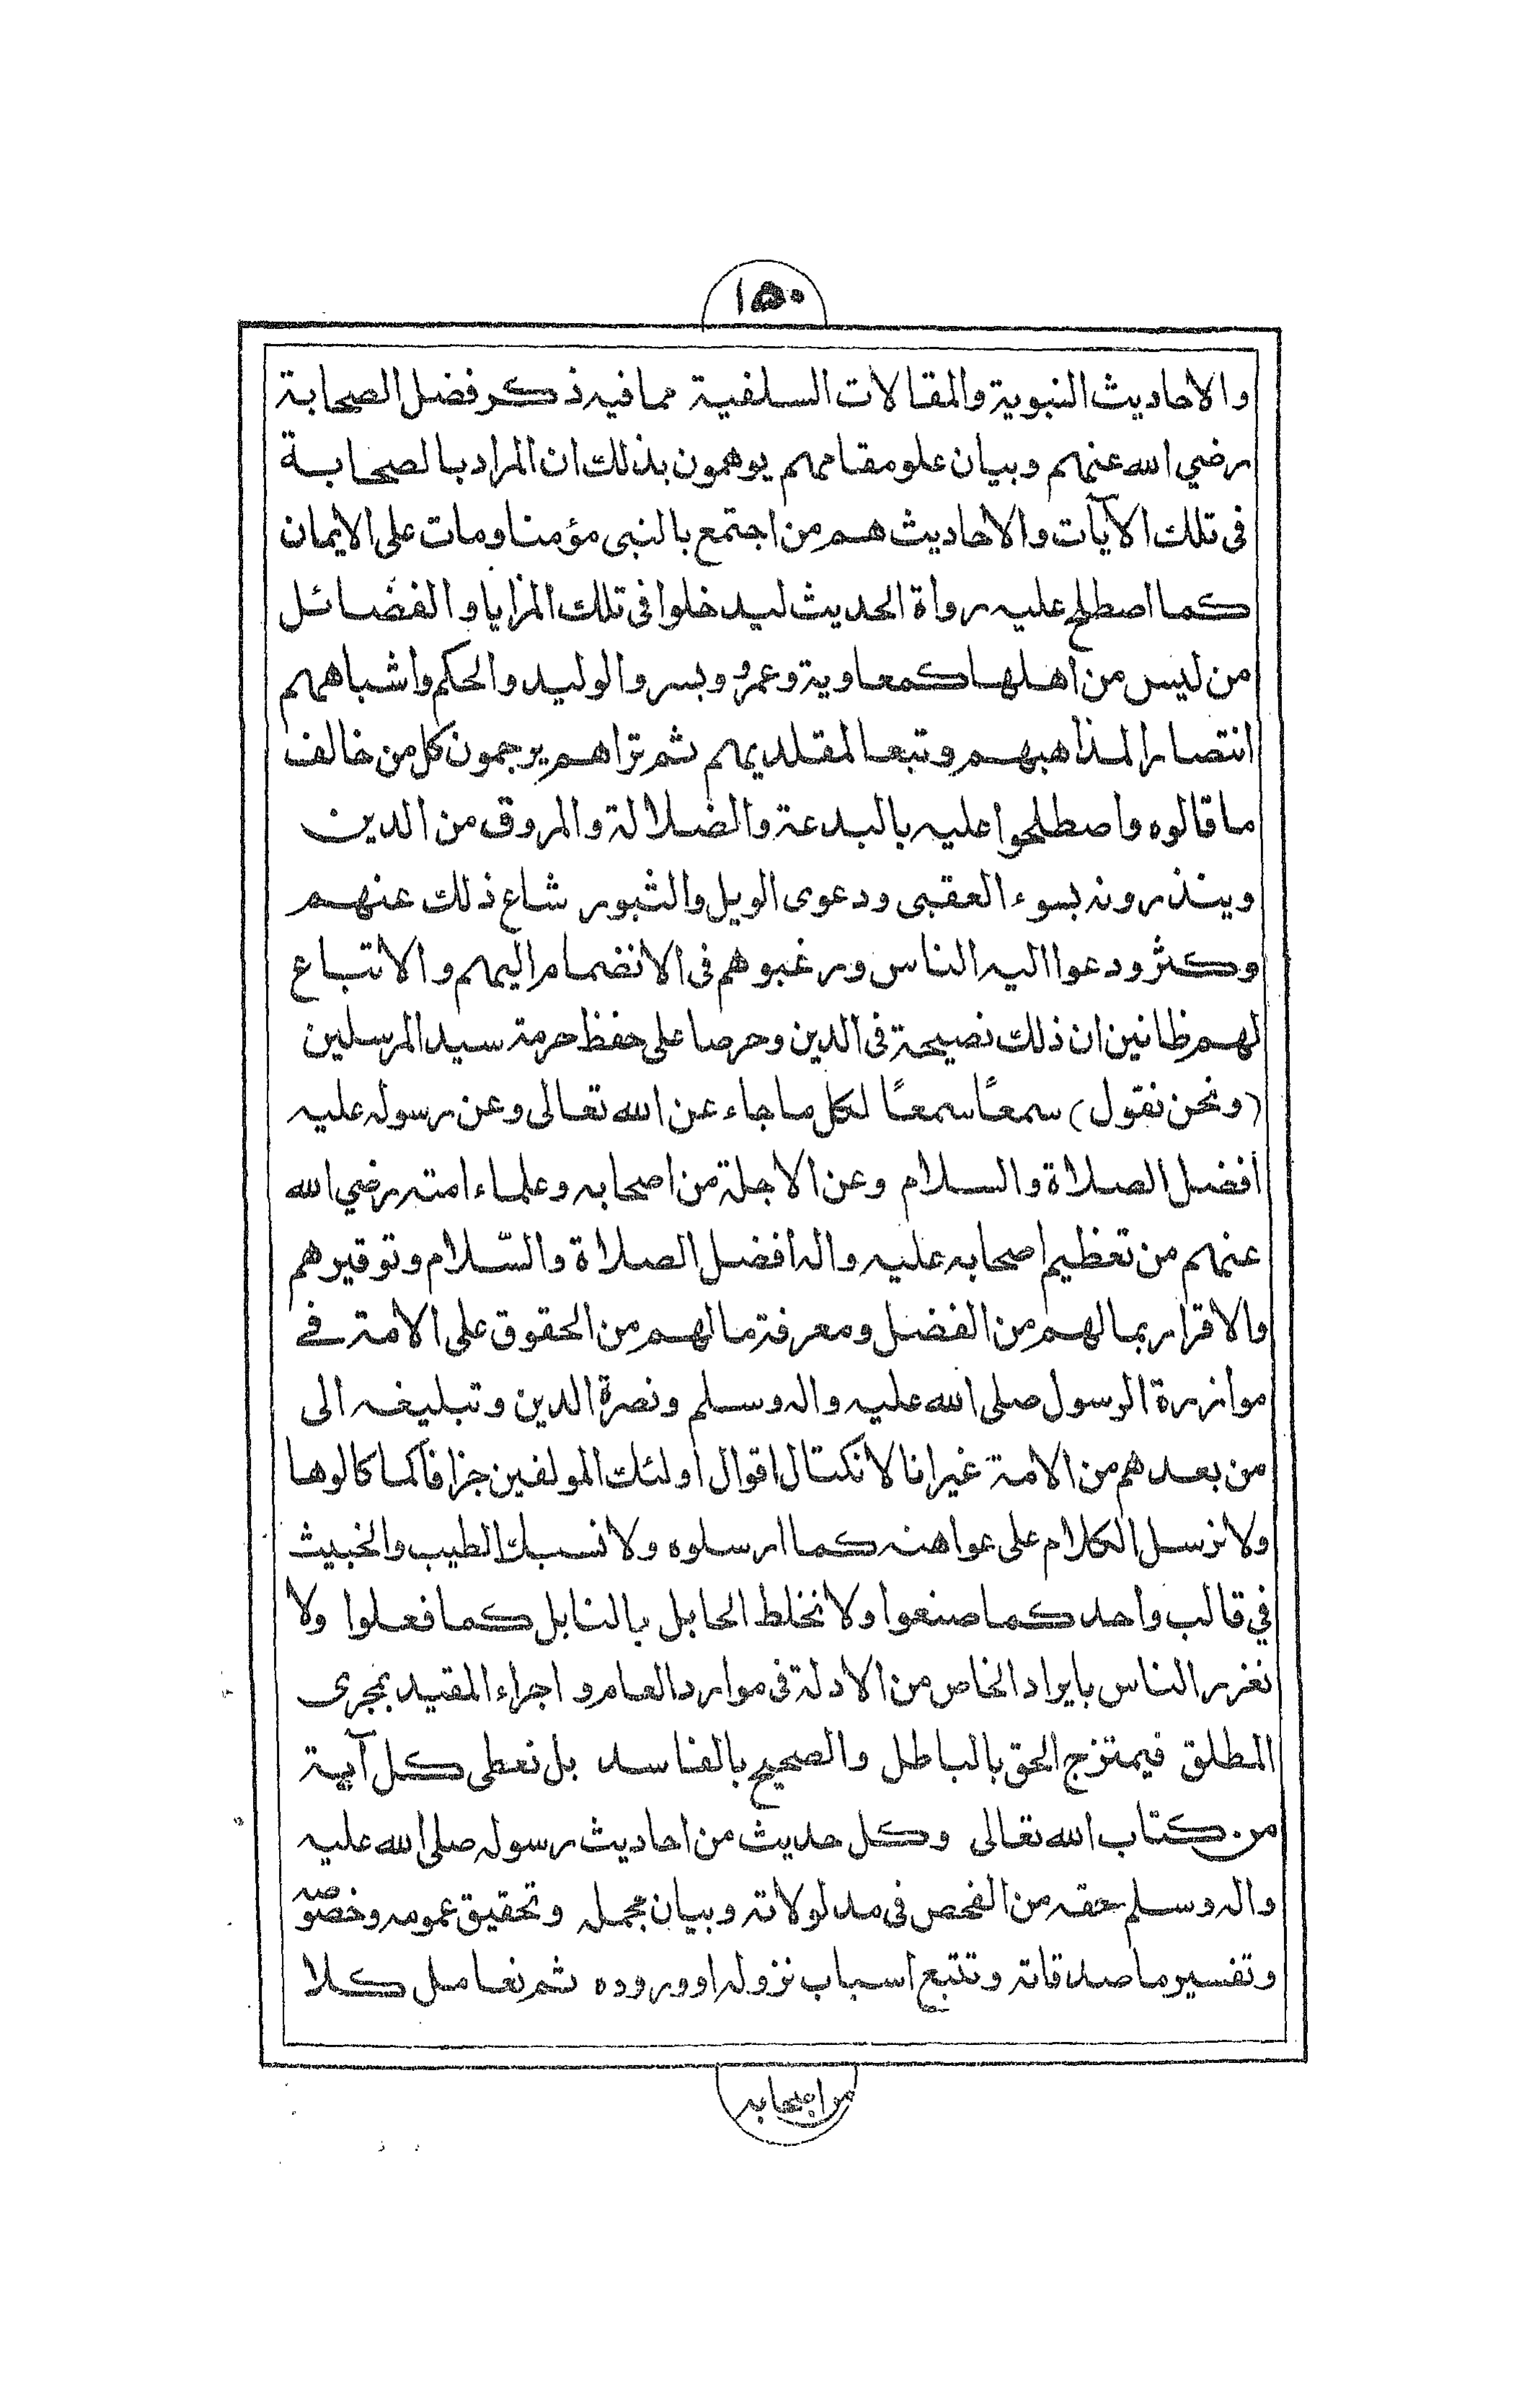 ١٥٠
والاحاديث النبوية والمقالات السلفية مما فيه ذكر فضل الصحابة
رضي الله عنهم وبيان علو مقامهم يوهمون بذلك ان المراد بالصحابة
فى تلك الآيات والاحاديث هم من اجتمع بالنبى مؤمنا ومات على الايمان
كما اصطلح عليه رواة الحديث ليدخلوا فى تلك المزايا والفضائل
من ليس من اهلها كمعاوية وعمرو وبسر والوليد والحكم واشباههم
انتصارا لمذاهبهم وتبعا لمقلديهم ثم تراهم يرجمون كل من خالف
ما قالوه واصطلحوا عليه بالبدعة والضلالة والمروق من الدين
وينذرونه بسوء العقبى ودعوى الويل والثبور شاع ذلك عنهم
وكثر ودعوا اليه الناس ورغبوهم فى الانضمام اليهم والاتباع
لهم ظانين ان ذلك نصيحة فى الدين وحرصا على حفظ حرمة سيد المرسلين
(ونحن نقول) سمعًا سمعًا لكل ما جاء عن الله تعالى وعن رسوله عليه
أفضل الصلاة والسلام وعن الاجلة من اصحابه وعلماء امته رضي الله
عنهم من تعظيم اصحابه عليه واله افضل الصلاة والسّلام وتوقيرهم
والاقرار بما لهم من الفضل ومعرفة ما لهم من الحقوق على الامة في
موازرة الرسول صلى الله عليه واله وسلم ونصرة الدين وتبليغه الى
من بعدهم من الامة غير انا لا نكتال اقوال اولئك المولفين جزافاً كما كالوها
ولا نرسل الكلام على عواهنه كما ارسلوه ولا نسبك الطيب والخبيث
في قالب واحد كما صنعوا ولا نخلط الحابل بالنابل كما فعلوا ولا
نغرر الناس بايراد الخاص من الادلة فى موارد العام واجراء المقيد بمجرى
المطلق فيمتزج الحق بالباطل والصحيح بالفاسد بل نعطى كل آية
من كتاب الله تعالى وكل حديث من احاديث رسوله صلى الله عليه
واله وسلم حقه من الفحص فى مدلولاته وبيان مجمله وتحقيق عمومه وخصوصه
وتفسير ما صدقاته وتتبع اسباب نزوله او وروده ثم نعامل كلا
من اصحابه